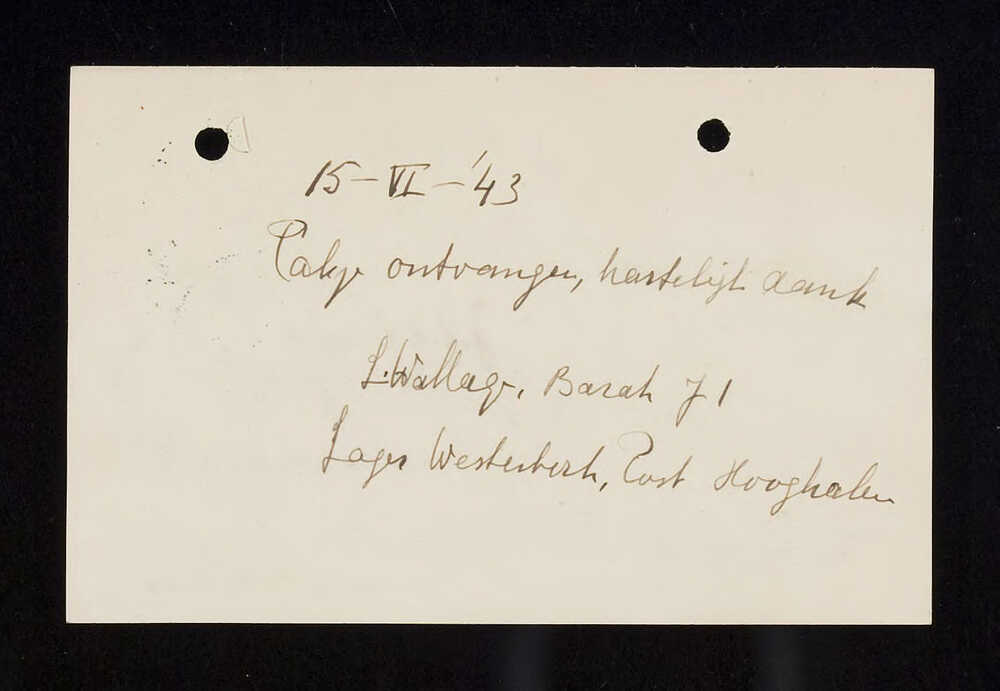 15-VI-'43
Pakje ontvangen, hartelijk dank
L. Wallage, Barak 71
Lager Westerbork, Post Hooghalen